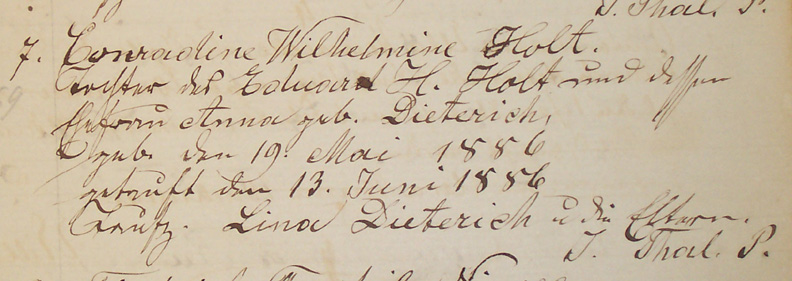 J. Thal. P.
7. Conradine Wilhelmine Holt.
Tochter des Eduard H. Holt und dessen
Ehefrau Anna geb. Dieterich,
geb. den 19. Mai 1886
getauft den 13. Juni 1886
Taufz. Lina Dieterich u die Eltern.
J. Thal. P.